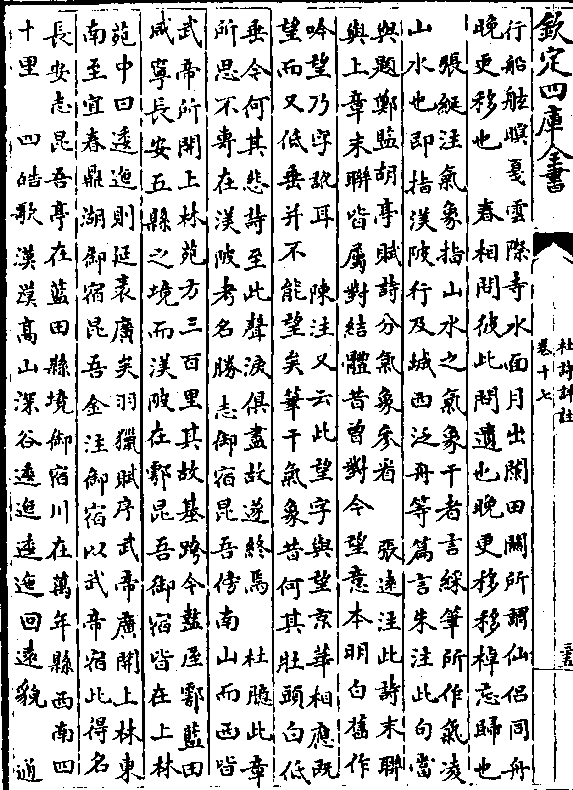 欽定四庫全書
杜詩詳註
卷十七
行船舷暝戛雲際寺水面月出闌田關所謂仙侶同舟
晚更移也　春相問彼此問遺也晚更移移棹忘歸也
張綖注氣象指山水之氣象干者言綵筆所作氣凌
山水也即指渼陂行及城西泛舟等篇言朱注此句當
與題鄭監胡亭賦詩分氣象參看　張遠注此詩末聯
與上章末聯皆屬對結體昔曾對今望意本明白舊作
吟望乃字訛耳　陳注又云此望字與望京華相應既
望而又低垂并不能望矣筆干氣象昔何其壯頭白低
垂今何其悲詩至此聲淚俱盡故遂終焉　杜臆此章
所思不專在渼陂考名勝志御宿昆吾傍南山而西皆
武帝所開上林苑方三百里其故基跨今盩厔鄠藍田
咸寧長安五縣之境而渼陂在鄠昆吾御宿皆在上林
苑中曰逶迤則延袤廣矣羽獵賦序武帝廣開上林東
南至宜春鼎湖御宿昆吾金注御宿以武帝宿此得名
長安志昆吾亭在藍田縣境御宿川在萬年縣西南四
十里　四皓歌漠漠高山深谷逶迤逶迤回遠貌　道